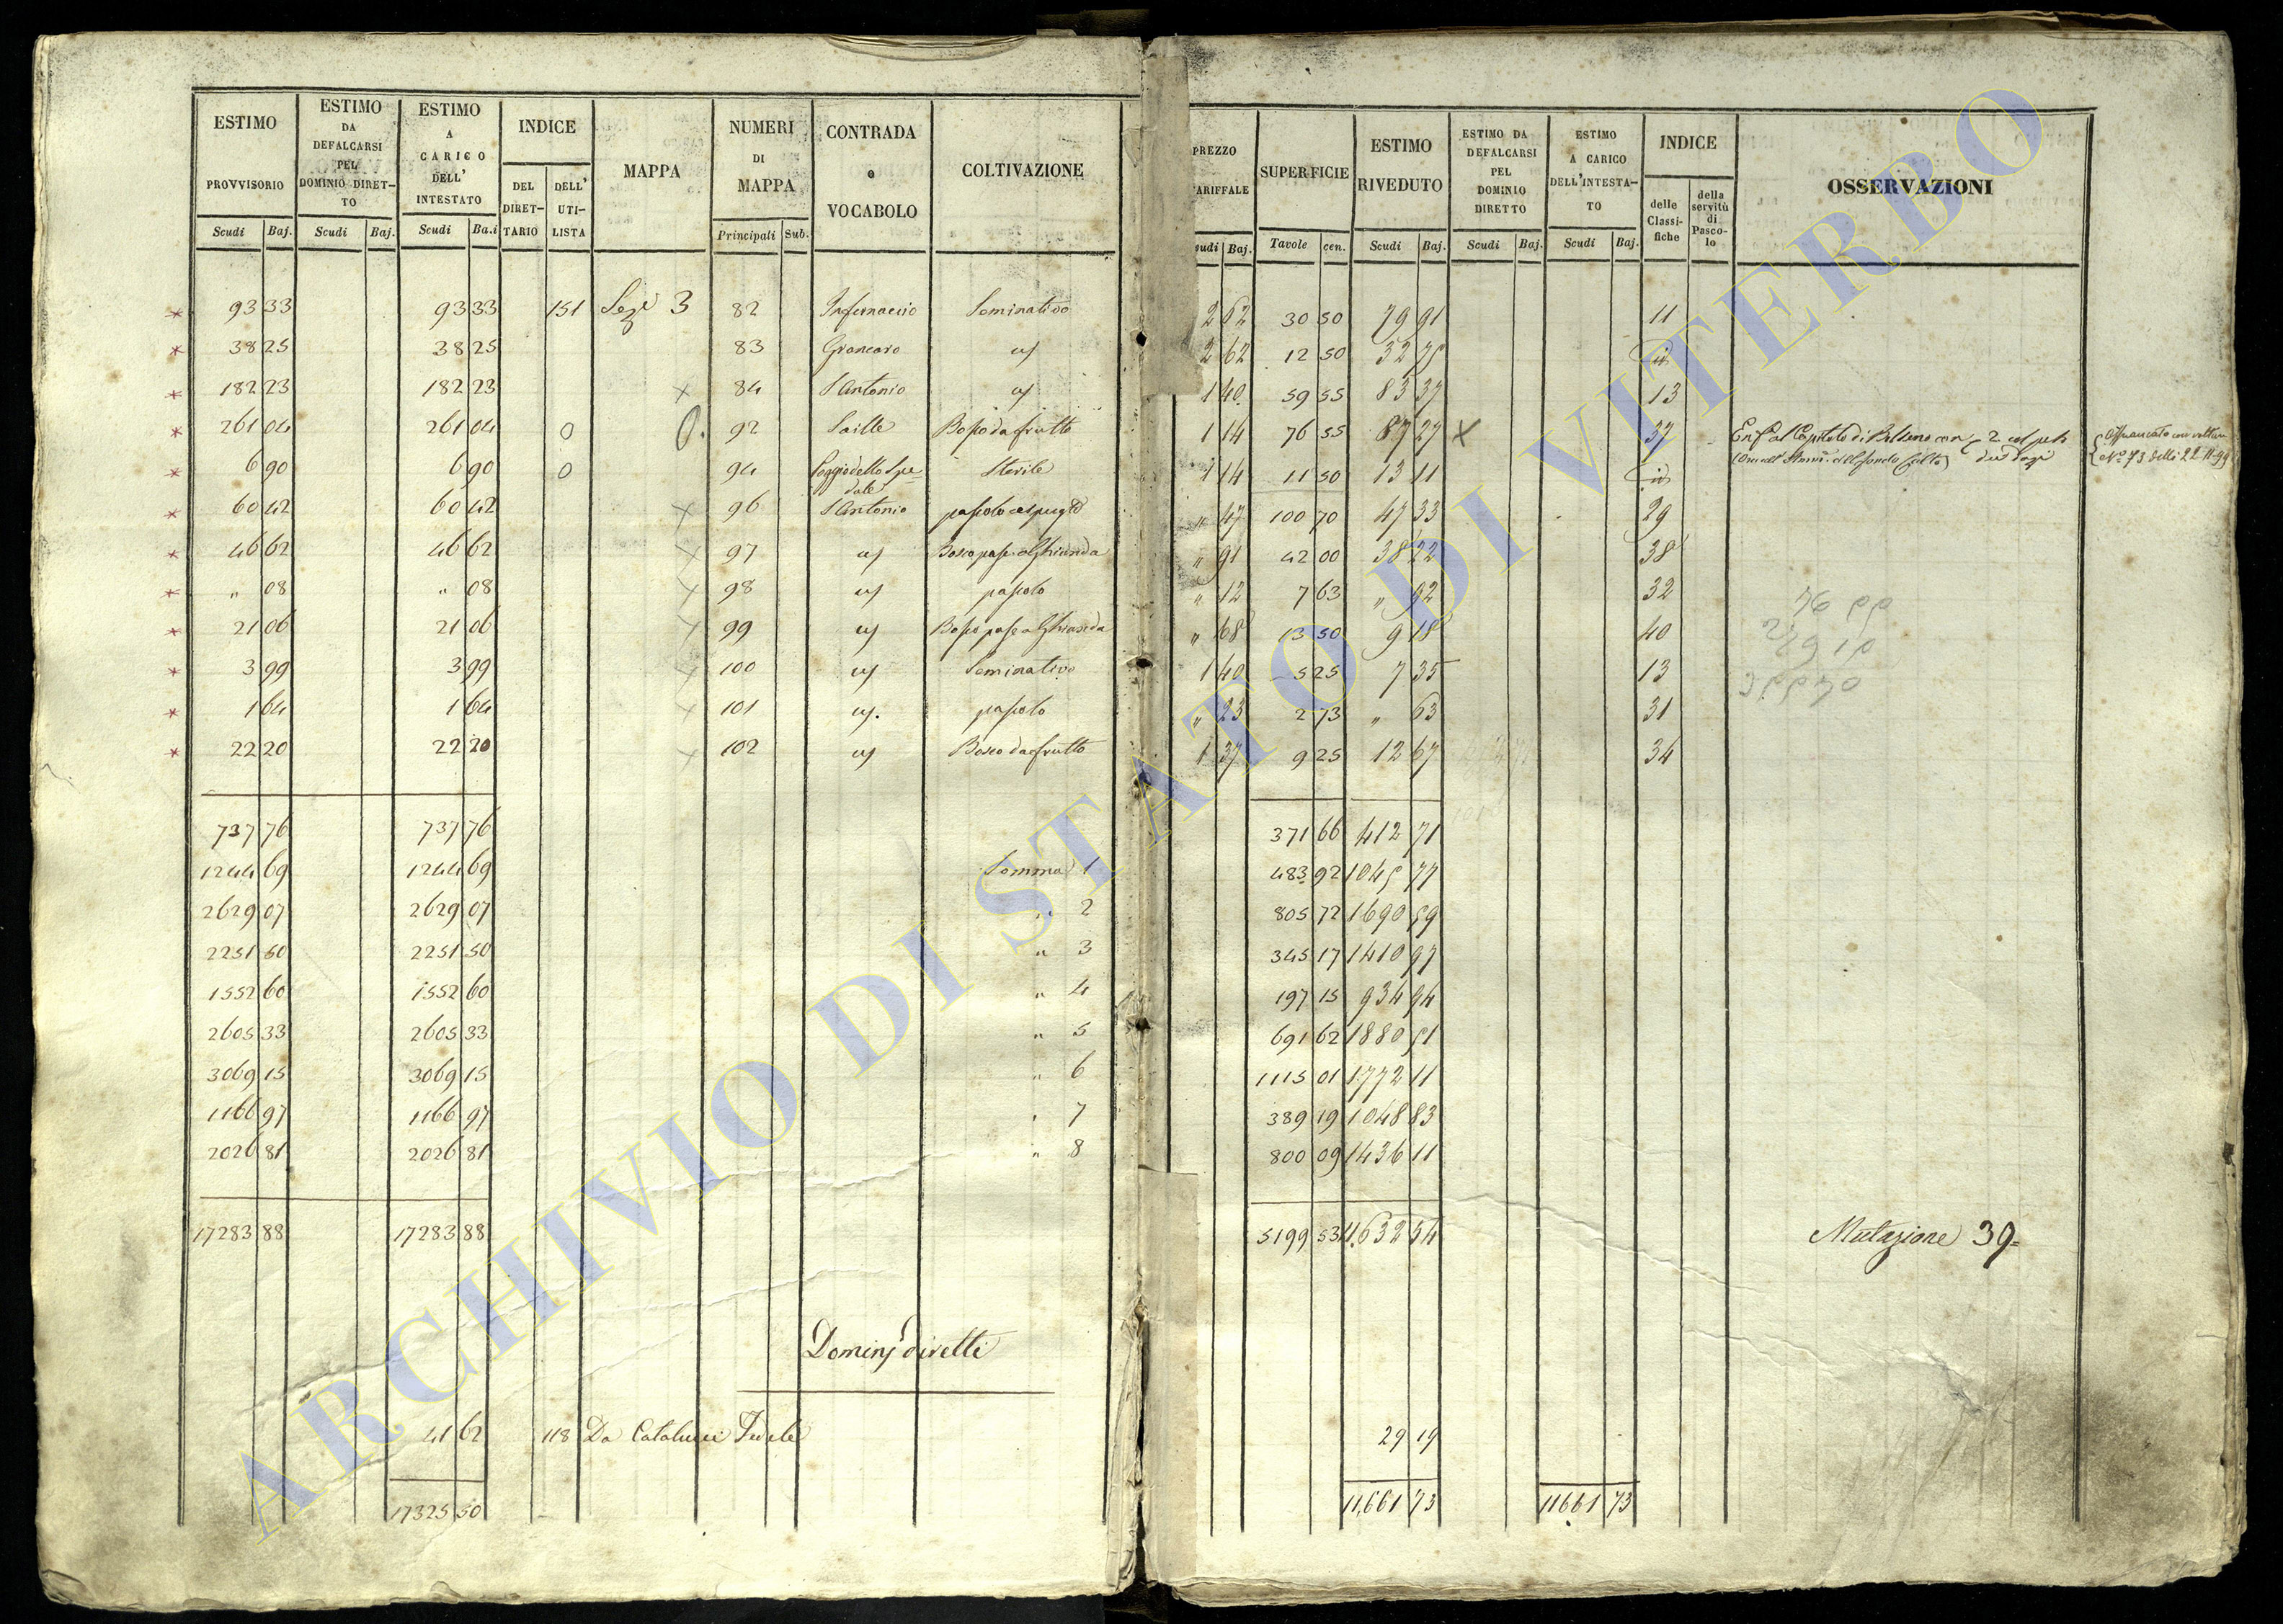 ESTIMO PROVVISORIO Scudi Baj.
ESTIMO DA DEFALCARSI PEL DOMINIO DIRETTO Scudi Baj.
ESTIMO A CARICO DELL' INTESTATO Scudi Ba.i
INDICE DEL DIRETTARIO DELL' UTILISTA
MAPPA
NUMERI DI MAPPA Principali Sub.
CONTRADA o VOCABOLO
COLTIVAZIONE
PREZZO TARIFFALE Scudi Baj.
SUPERFICIE Tavole cen.
ESTIMO RIVEDUTO Scudi Baj.
ESTIMO DA DEFALCARSI PEL DOMINIO DIRETTO Scudi Baj.
ESTIMO A CARICO DELL'INTESTATO Scudi Baj.
INDICE delle Classifiche della servitù di Pascolo
OSSERVAZIONI
93 33 93 33 151 Sez.e 3 82 Infernaccio Seminativo 2 62 30 50 79 91 11
38 25 38 25 83 Grancaro id 2 62 12 50 32 75 id
182 23 182 23 x 84 S Antonio id 1 40 59 55 83 37 13
261 04 261 04 0 0. 92 Saille Bosco da frutto 1 14 76 55 87 27 x 37
6 90 6 90 0 94 Poggio dello Spedale Sterile 1 14 11 50 13 11 id
60 42 60 42 x 96 S Antonio pascolo cespugto " 47 100 70 47 33 29
46 62 46 62 x 97 id Bosco pasc. a Ghianda " 91 42 00 38 22 38
" 08 " 08 x 98 id pascolo " 12 7 63 " 92 32
21 06 21 06 x 99 id Bosco pasc. a Ghianda " 68 13 50 9 18 40
3 99 3 99 x 100 id Seminativo 1 40 5 25 7 35 13
1 64 1 64 x 101 id. pascolo " 23 2 73 " 63 31
22 20 22 20 x 102 id Bosco da frutto 1 37 9 25 12 67 34
737 76 737 76 371 66 412 71
1244 69 1244 69 Somma 1 483 92 1045 77
2629 07 2629 07 " 2 805 72 1690 59
2251 50 2251 50 " 3 345 17 1410 97
1552 60 1552 60 " 4 197 15 934 94
2605 33 2605 33 " 5 691 62 1880 51
3069 15 3069 15 " 6 1115 01 1772 11
1166 97 1166 97 " 7 389 19 1048 83
2026 81 2026 81 " 8 800 09 1436 11
17283 88 17283 88 5199 53 11,632 54 Mutazione 39=
Dominj diretti
41 62 118 Da Catalucci Fedele 29 19
17325 50 11,661 73 11661 73
Enfa al Capitolo di Bolseno con
Affrancato con voltura
No 73 delli 22-11-99
ARCHIVIO DI STATO DI VITERBO